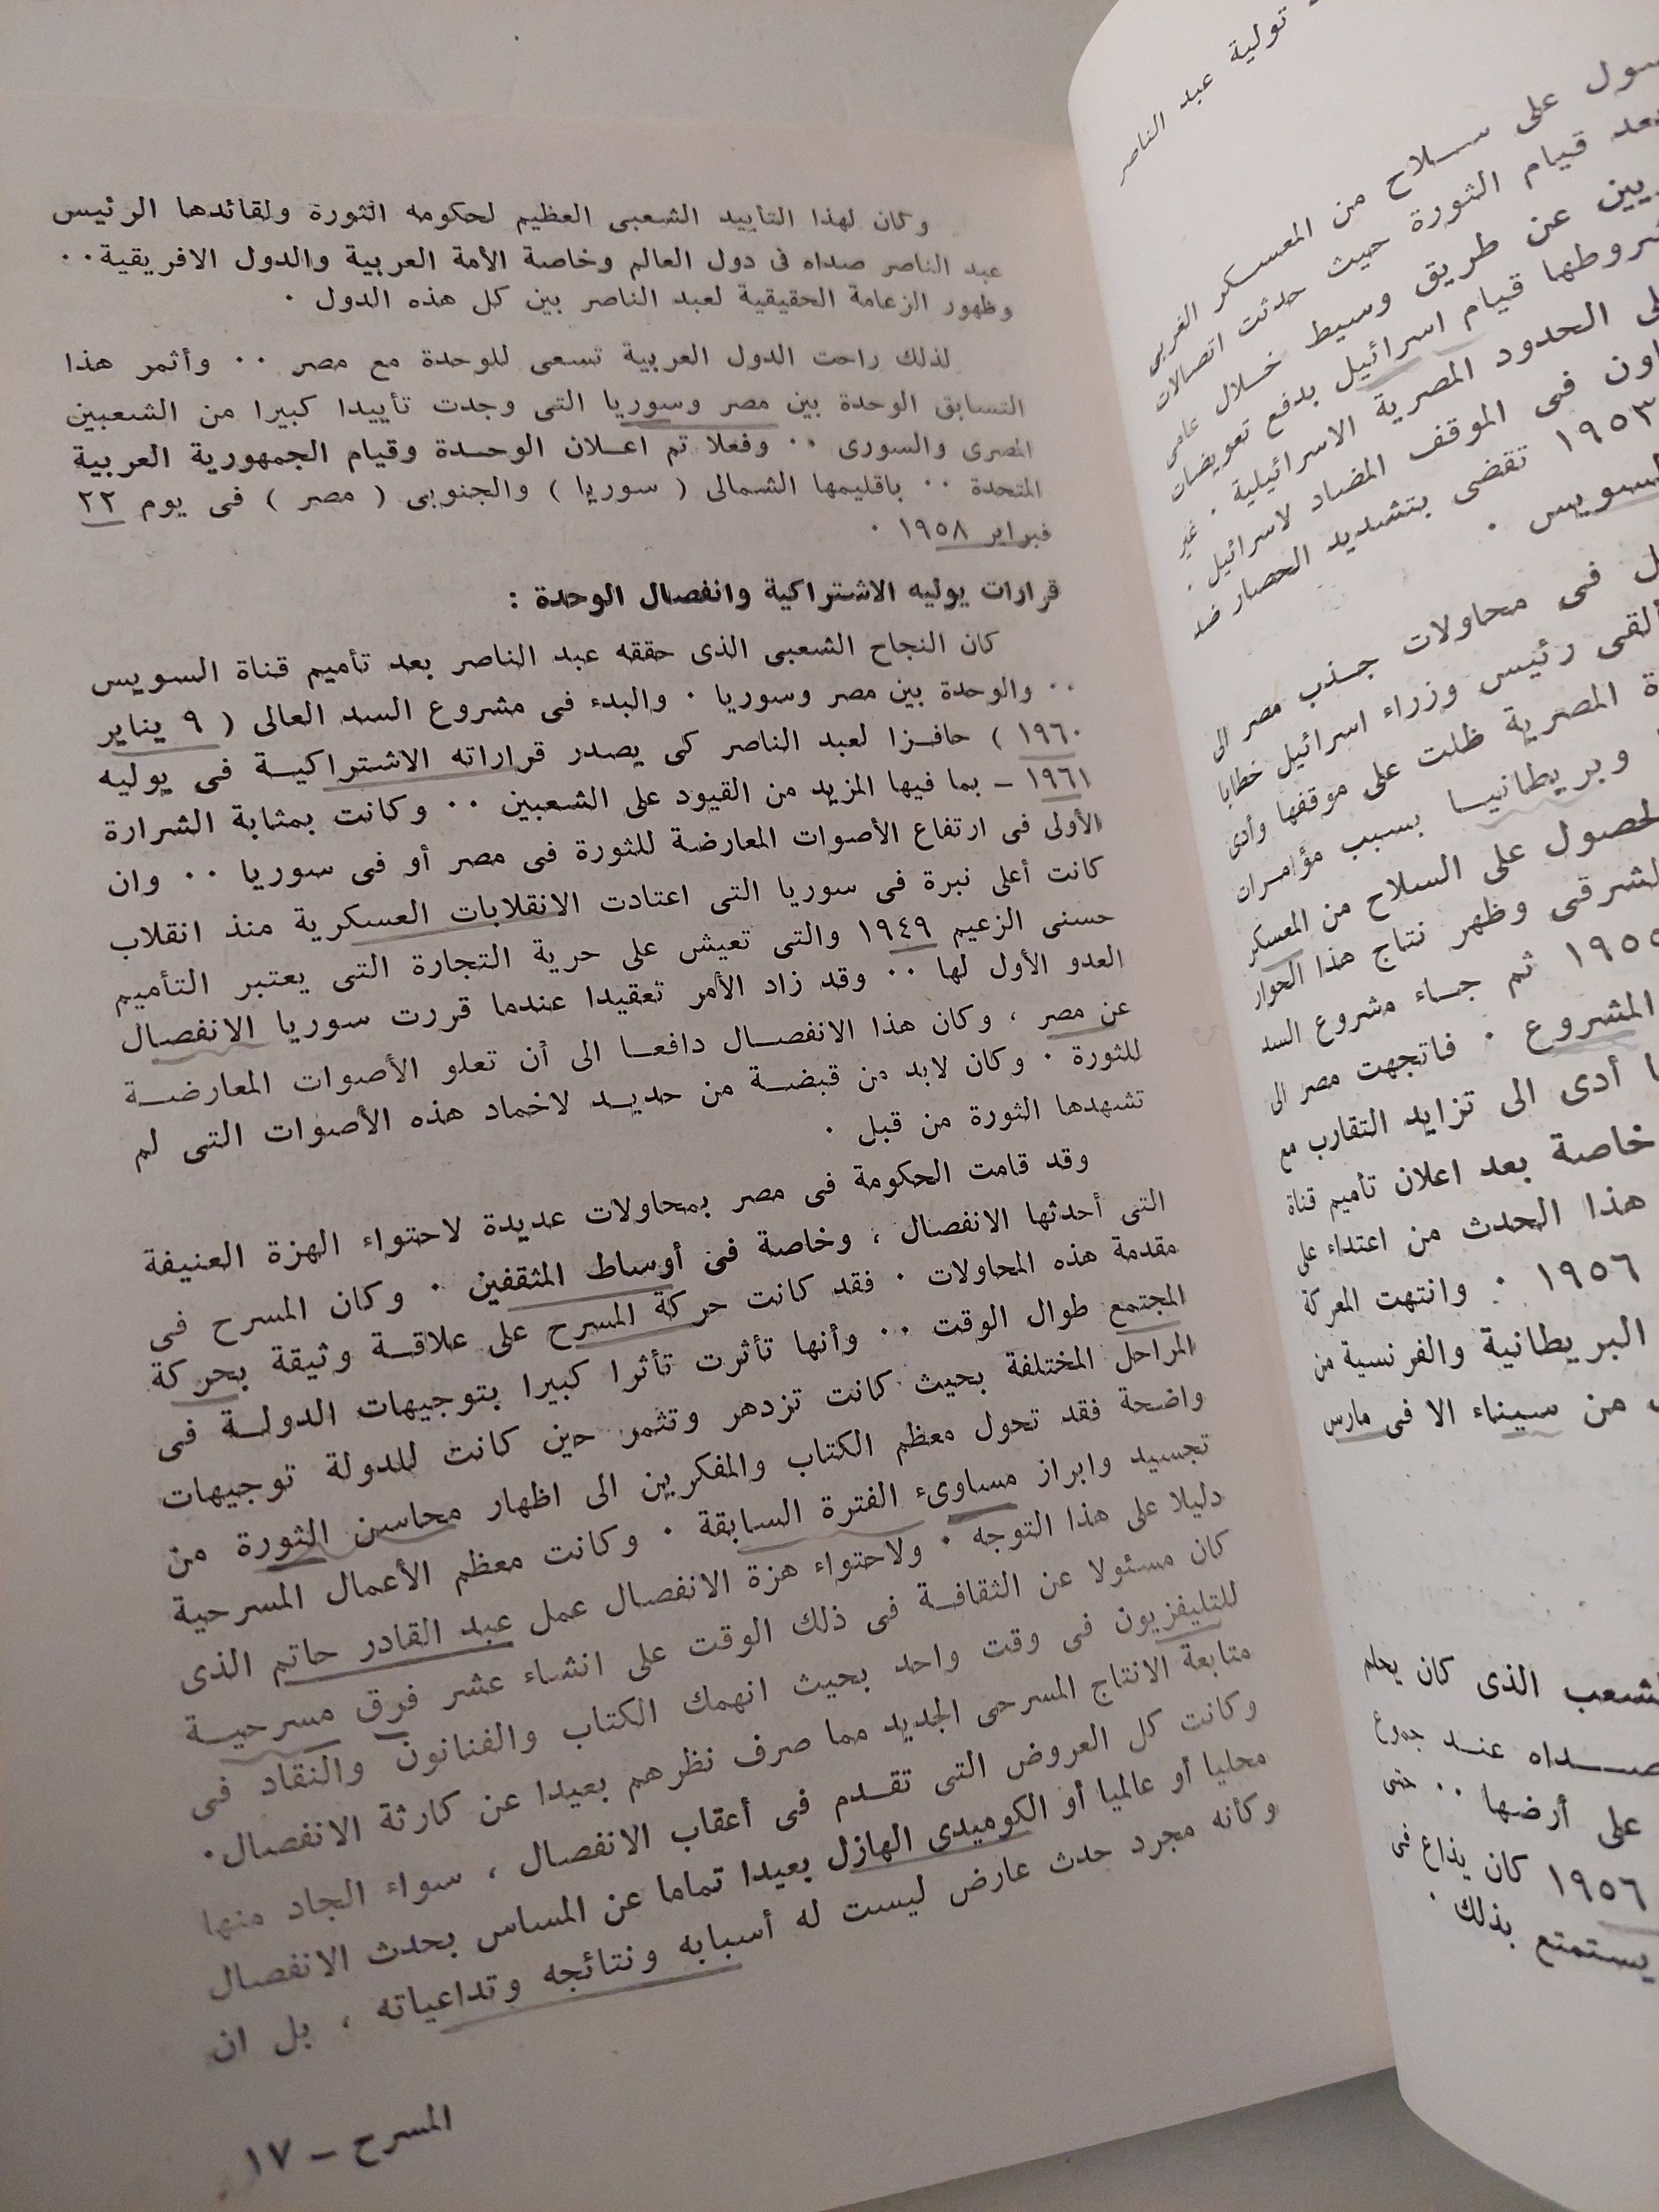 تولية عبد الناصر
على ســلاح من المعسكر الغربى
قيام الثورة حيث حدثت اتصالات
عن طريق وسيط خــلال عامى
قيام اسرائيل بدفع تعويضات
الحدود المصرية الاسرائيلية . غير
فى الموقف المضاد لاسرائيل .
١٩٥٣ تقضى بتشديد الحصار ضد
السويس .
فى محاولات جـذب مصر الى
ألقى رئيس وزراء اسرائيل خطابا
المصرية ظلت على موقفها وأدى
وبريطانيــا بسبب مؤامـرات
على السلاح من المعسكر
وظهر نتاج هذا الحوار
ثم جــاء مشروع السد
المشروع . فاتجهت مصر الى
أدى الى تزايد التقارب مع
خاصة بعد اعلان تأميم قناة
هذا الحدث من اعتداء على
١٩٥٦ . وانتهت المعركة
البريطانية والفرنسية من
من سيناء الا فى مارس
الذى كان يحلم
عنــد جموع
على أرضها .. حتى
١٩٥٦ كان يذاع فى
يستمتع بذلك .
وكان لهذا التأييد الشعبى العظيم لحكومه الثورة ولقائدها الرئيس
عبد الناصر صداه فى دول العالم وخاصة الأمة العربية والدول الافريقية . .
وظهور الزعامة الحقيقية لعبد الناصر بين كل هذه الدول .
لذلك راحت الدول العربية تسعى للوحدة مع مصر .. وأثمر هذا
التسابق الوحدة بين مصر وسوريا التى وجدت تأييدا كبيرا من الشعبين
المصرى والسورى .. وفعلا تم اعــلان الوحــدة وقيام الجمهورية العربية
المتحدة .. باقليمها الشمالى ( سوريا ) والجنوبى ( مصر ) فى يوم ٢٢
فبراير ١٩٥٨ .
قرارات يوليه الاشتراكية وانفصال الوحدة :
كان النجاح الشعبى الذى حققه عبد الناصر بعد تأميم قناة السويس
.. والوحدة بين مصر وسوريا . والبدء فى مشروع السد العالى ( ٩ يناير
١٩٦٠ ) حافــزا لعبد الناصر كى يصدر قراراته الاشتراكيــة فى يوليه
١٩٦١ ــ بما فيها المزيد من القيود على الشعبين .. وكانت بمثابة الشرارة
الأولى فى ارتفاع الأصوات المعارضة للثورة فى مصر أو فى سوريا .. وان
كانت أعلى نبرة فى سوريا التى اعتادت الانقلابات العسكرية منذ انقلاب
حسنى الزعيم ١٩٤٩ والتى تعيش على حرية التجارة التى يعتبر التأميم
العدو الأول لها .. وقد زاد الأمر تعقيدا عندما قررت سوريا الانفصال
عن مصر ، وكان هذا الانفصــال دافعــا الى أن تعلو الأصوات المعارضــة
للثورة . وكان لابد من قبضــة من حديــد لاخماد هذه الأصوات التى لم
تشهدها الثورة من قبل .
وقد قامت الحكومة فى مصر بمحاولات عديدة لاحتواء الهزة العنيفة
التى أحدثها الانفصال ، وخاصة فى أوساط المثقفين . وكان المسرح فى
مقدمة هذه المحاولات . فقد كانت حركة المسرح على علاقــة وثيقة بحركة
المجتمع طوال الوقت .. وأنها تأثرت تأثرا كبيرا بتوجيهات الدولــة فى
المراحل المختلفة بحيث كانت تزدهر وتثمر حين كانت للدولة توجيهات
واضحة فقد تحول معظم الكتاب والمفكرين الى اظهار محاسن الثورة من
تجسيد وابراز مساوىء الفترة السابقة . وكانت معظم الأعمال المسرحية
دليلا على هذا التوجه . ولاحتواء هزة الانفصال عمل عبد القادر حاتم الذى
كان مسئولا عن الثقافــة فى ذلك الوقت على انشاء عشر فرق مسرحيــة
للتليفزيون فى وقت واحد بحيث انهمك الكتاب والفنانون والنقاد فى
متابعة الانتاج المسرحى الجديد مما صرف نظرهم بعيدا عن كارثة الانفصال .
وكانت كل العروض التى تقــدم فى أعقاب الانفصال ، سواء الجاد منها
محليا أو عالميا أو الكوميدى الهازل بعيدا تماما عن المساس بحدث الانفصال
وكأنه مجرد حدث عارض ليست له أسبابه ونتائجه وتداعياته ، بل ان
المسرح ــ ١٧